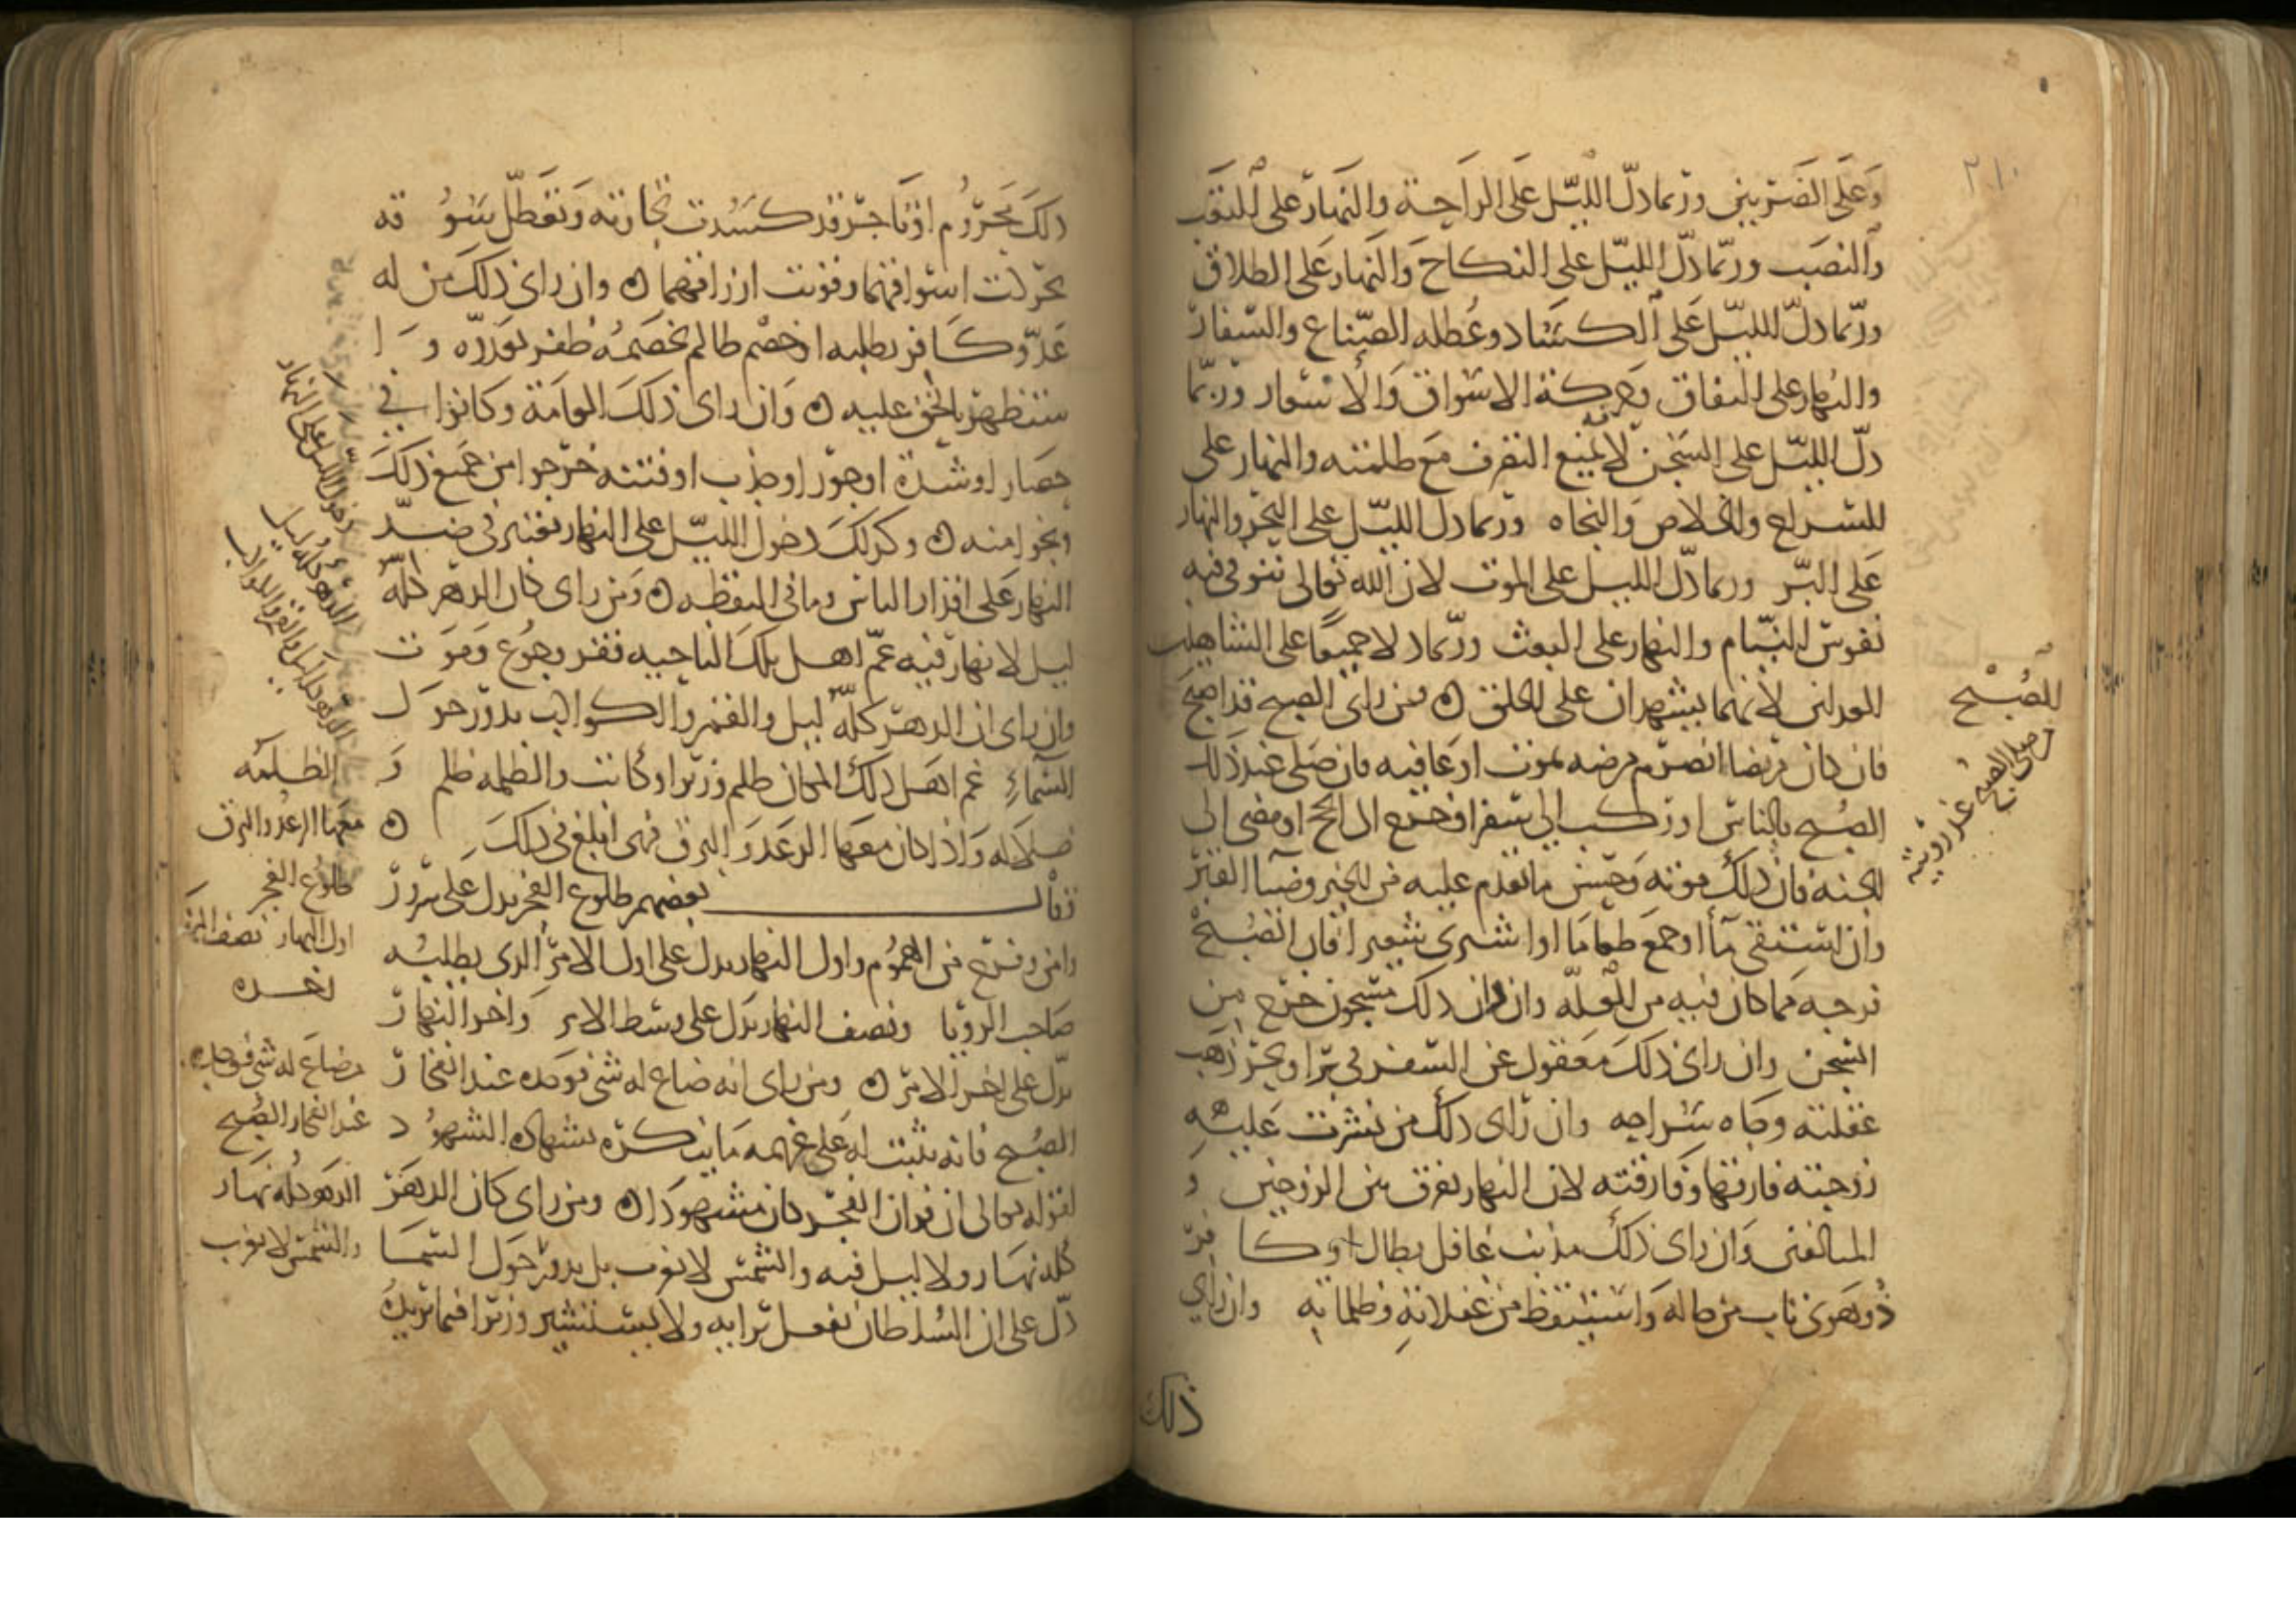 ٢١٠
وَعَلَى الضرتين وربما دلّ الليّل عَلَى الراحة والنهار على التعَب
والنصَب وربّما دلّ الليّل على النكاح وَالنهار عَلى الطلاق
وربّما دلّ الليّل عَلى الكساد وعُطله الصّناع والسفار
والنهار على النفاق وحركة الاسواق وَالأسعار وربّما
دلّ الليّل على السَجن لأنه يمنع التصرف مَع ظلمته والنهار على
السراح والخلاص وَالنجاه وربما دل الليّل على البَحر والنهار
عَلى البَرّ وربما دلّ الليل على الموت لان الله تعالى يتوفى فيه
نفوس النيّام والنهار على البعث وربّما دلا جميعًا على الشاهدين
العدلين لأنهما يشهدان على الخلق ومن راى الصبح قد اصبح
فان كان مريضا انصرم مرضه بموت او عافيه فان صَلى عند ذلك
الصُبح بالناس او ركب الى سفر او خرج الى الحج او مضى الى
الجنه فان ذلك موته وَحسن ما تقدم عليه من الخير وضيآ القبر
وان استسقى مآ أو جمعَ طعامًا او اشترى شعيرا فان الصُبح
فرجه مما كان فيه من العلّه وان كان ذلك مسجون خرج من
السجن وان راى ذلكَ معقول عن السفر في بر او بحر ذهب
عقلته وجاه سَراحه وان رَاى ذلك من نشزت عَليه
زوجته فارقها وفارقته لان النهار يفرق بين الزوجين و
المتالفين وَان راى ذلك مذنب غافل بطال او كافر
ذُو هَوى تاب من حاله وَاستيقظ من غفلاته وظلماته وان راي
ذلك
الصُبْح
من صلى الصبح عند رويته
ذلكَ محرُوم او تَاجر قد كسَدت تجارته وَتعَطّل سُوقه
تحركت اسواقهما وقويت ارزاقهما وان راى ذلكَ من له
عَدوّ كافر يطلبه او خصْم ظالم يخصَمهُ ظفر بعَدوّه وا
ستظهر بالحق عليه وَان راى ذلكَ العامة وكانوا في
حصَار او شدة او جوْر او جذب او فتنه خرَجوا من جَميع ذلكَ
ونجَوا منه وكذلكَ دخول الليّل على النهار يعتبر في ضدّ
النهار عَلى اقدار الناس وما في اليقظه ومن راى كان الدهر كلّه
ليل لا نهار فيه عمّ اهل تلكَ الناحيه فقر وجُوع وَموَت
وان راى ان الدهر كلّه ليل والقمر والكواكب يدور حوَل
السمآءِ عم اهَل ذلك المكان ظلم وزيرا وكاتب والظلمه ظلم وَ
ضلاله وَاذا كان معَها الرعَد وَالبرق فهى ابلغ في ذلكَ
وقال بعضهم طلوع الفجر يدل عَلى سُرور
وامن وفرَج من الهمُوم واول النهار يدل على اول الامر الذى يطلبُه
صَاحب الرويا ونصف النهار يدَل على وسط الامر وَاخر النهار
يدّل على اخر الامر ومن راى انه ضاع له شى فوجَده عند انفجار
الصُبح فانه يثبت له عَلى غريمه مَا ينكره بشهاده الشهُود
لقوله تعالى ان قران الفجر كان مشهودًا ومن راى كان الدهر
كله نهَار ولا ليل فيه والشمس لا تغرب بل يدور حَول السما
دّل على ان السُلطان يفعل برايه ولا يستشير وزيرا فيما يريدُه
دخول الليل على النهار
الدهر كله ليل
الدهر كله ليل والقمر والكواكب
الظلمه
معهَا الرعد والبرق
طلوع الفجر
اول النهار نصف النهار
اخره
من ضاع له شي فوجده
عند انفجار الصُبح
الدهر كله نهَار
والشمس لا تغرب